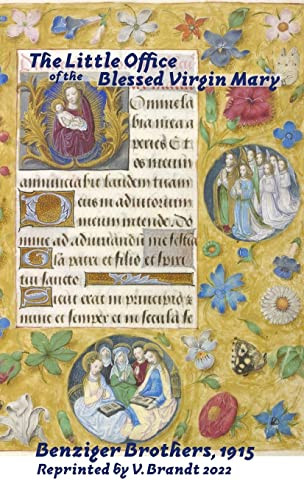 The Little Office
of the Blessed Virgin Mary
Domine la
bia mea a
peries Et os
meum
annunciabit laudem tuam
Deus in adiutorium
meum intende. Do
mine ad adiuvandum me
patri et filio et spiri
tui sancto
Sicut erat in principio et
nunc et semper et in secula se
Benziger Brothers, 1915
Reprinted by V. Brandt 2022